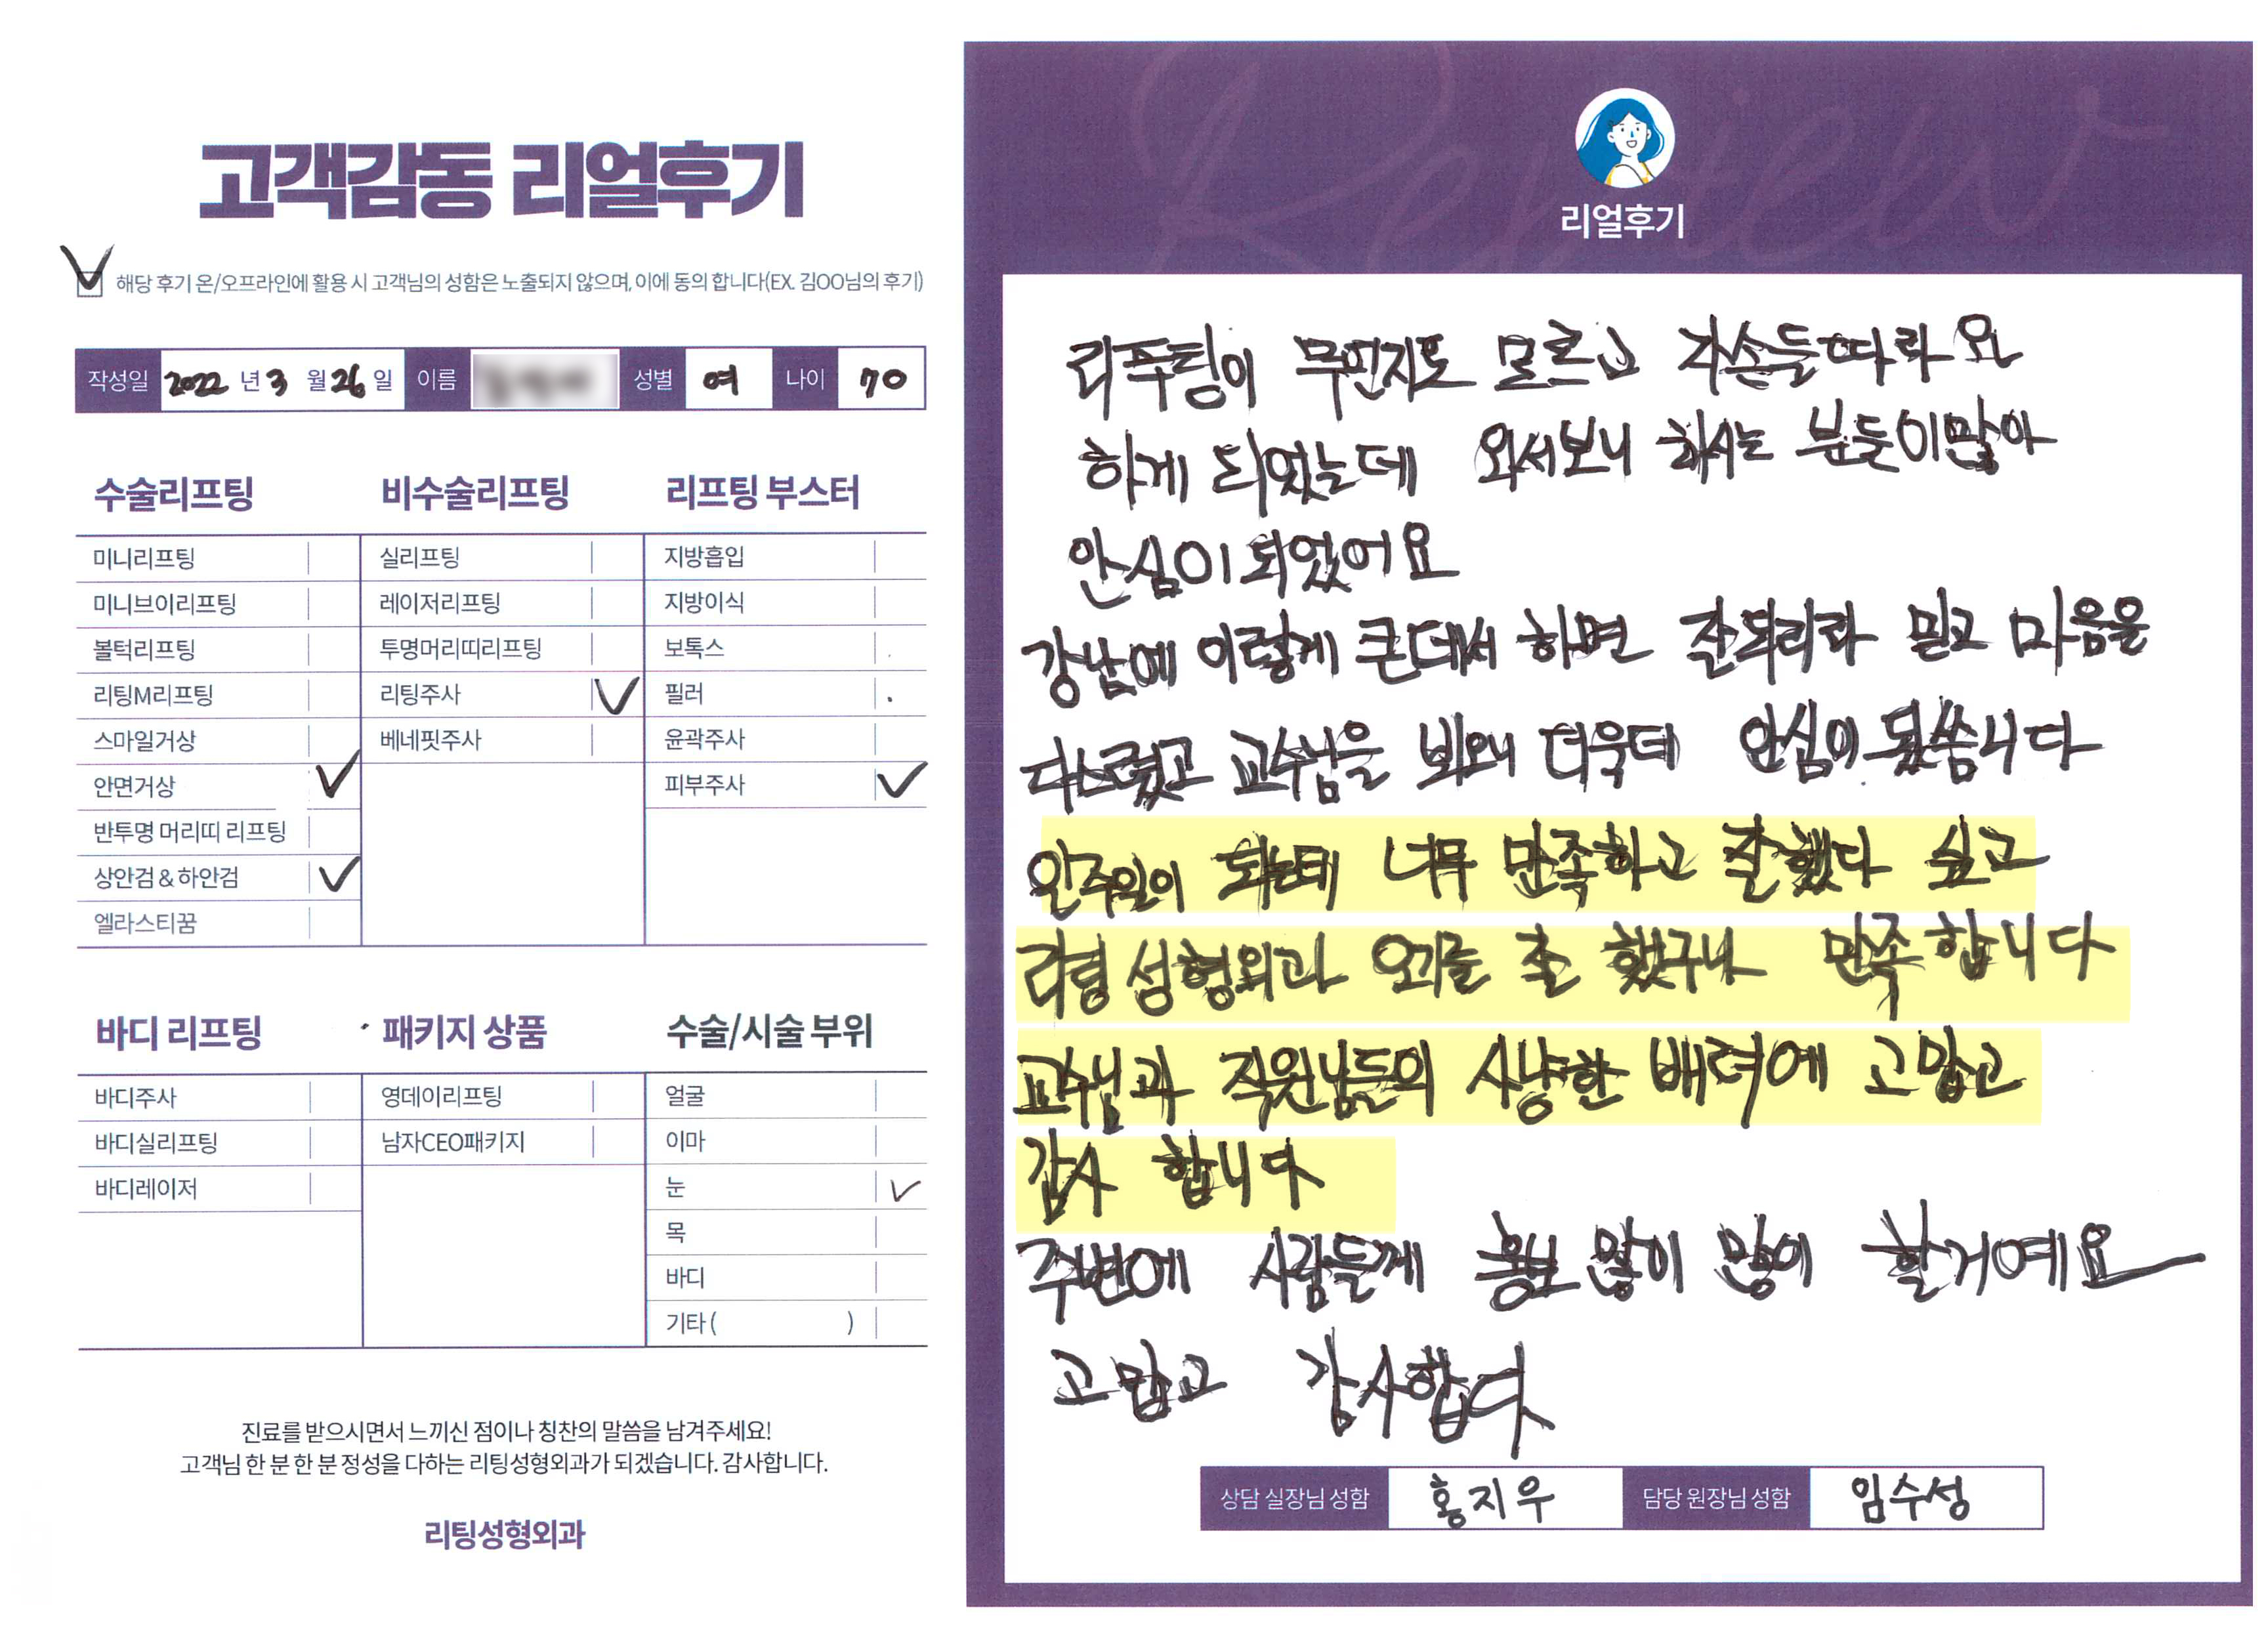 고객감동 리얼후기
해당 후기 온/오프라인에 활용 시 고객님의 성함은 노출되지 않으며, 이에 동의 합니다(EX. 김OO님의 후기)
작성일 2022 년 3 월 26 일 이름 성별 여 나이 70
수술리프팅
미니리프팅
미니브이리프팅
볼턱리프팅
리팅M리프팅
스마일거상
안면거상
반투명 머리띠 리프팅
상안검 & 하안검
엘라스티꿈
비수술리프팅
실리프팅
레이저리프팅
투명머리띠리프팅
리팅주사
베네핏주사
리프팅 부스터
지방흡입
지방이식
보톡스
필러
윤곽주사
피부주사
바디 리프팅
바디주사
바디실리프팅
바디레이저
패키지 상품
영데이리프팅
남자CEO패키지
수술/시술 부위
얼굴
이마
눈
목
바디
기타 ( )
진료를 받으시면서 느끼신 점이나 칭찬의 말씀을 남겨주세요!
고객님 한 분 한 분 정성을 다하는 리팅성형외과가 되겠습니다. 감사합니다.
리팅성형외과
Review
리얼후기
리푸팅이 무먼지도 모르고 자손들따라 요
하게 되었는데 와서보니 하시는 분들이많아
안심이 되었어요
강남에 이렇게 큰데서 하면 잘되리라 믿고 마음을
다스렸고 교수님을 뵈오니 더욱더 안심이 됬씀니다
일주일이 되는데 너무 만족하고 잘했다 싶고
리팅 성형외과 오기를 잘 했구나 만족 합니다
교수님과 직원님들의 사냥한 배려에 고맙고
감사 합니다
주변에 사람들께 홍보 많이 많이 할거예요
고맙고 감사합니다
상담 실장님 성함 홍지우 담당 원장님 성함 임수성